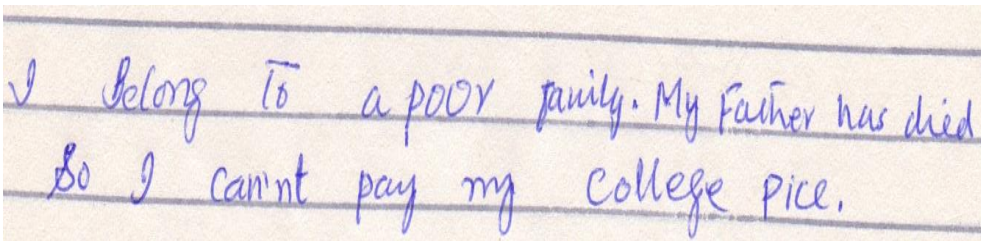 I Belong To a poor family. My Father has died
So I can'nt pay my college pice.